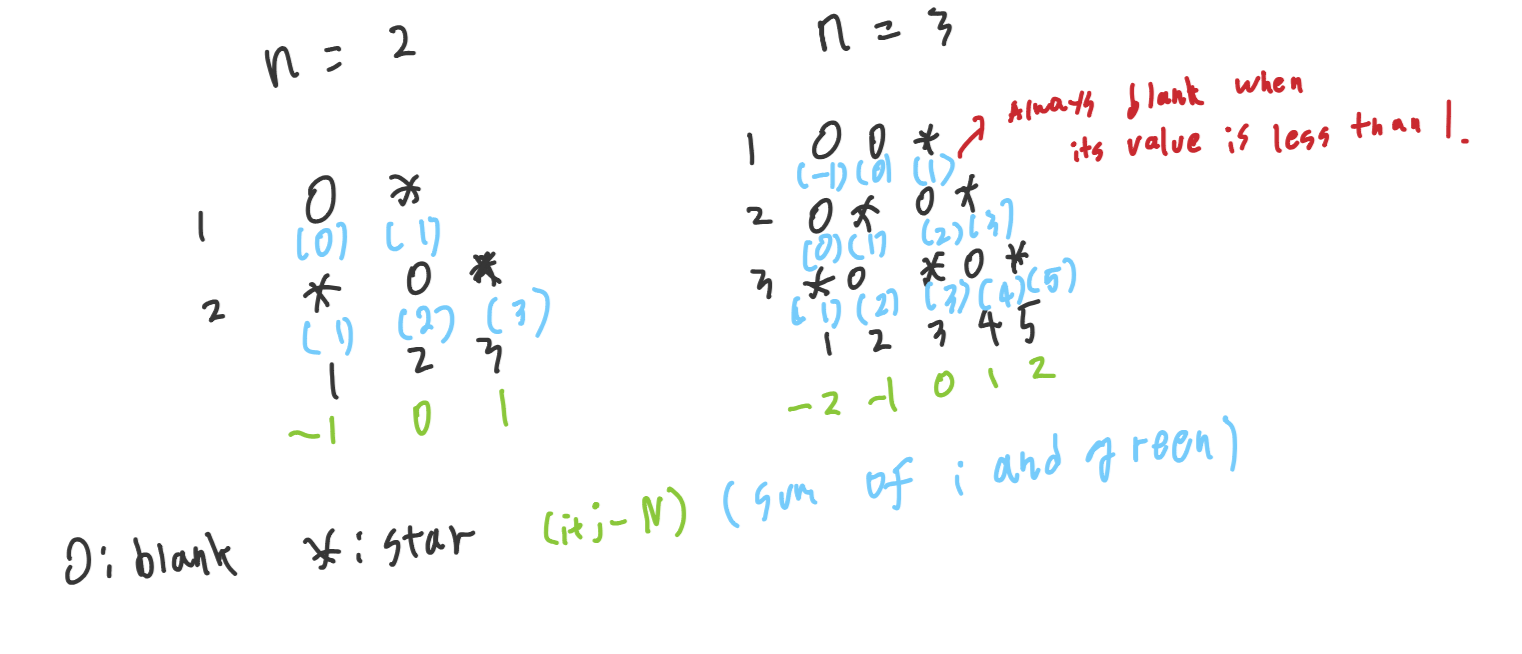 n = 2
1 0 *
(0) (1)
2 * 0 *
(1) (2) (3)
1 2 3
-1 0 1
n = 3
Always blank when
its value is less than 1.
1 0 0 *
(-1) (0) (1)
2 0 * 0 *
(0) (1) (2) (3)
3 * 0 * 0 *
(1) (2) (3) (4) (5)
1 2 3 4 5
-2 -1 0 1 2
0: blank *: star (i+j-N) (sum of i and green)